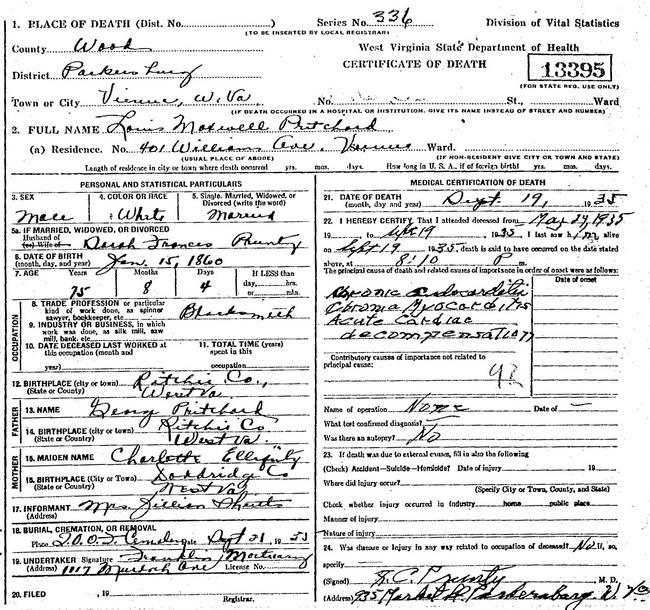 1. PLACE OF DEATH (Dist. No. Series No. 336 Division of Vital Statistics
(TO BE INSERTED BY LOCAL REGISTRAR)
County Wood West Virginia State Department of Health
CERTIFICATE OF DEATH 13395
District Parkersburg (FOR STATE REG. USE ONLY)
Town or City Vienna, W. Va No. St., Ward
(IF DEATH OCCURRED IN A HOSPITAL OR INSTITUTION, GIVE ITS NAME INSTEAD OF STREET AND NUMBER)
2. FULL NAME Louis Maxwell Pritchard
(a) Residence. No. 401 Williams Ave. Vienna Ward.
(USUAL PLACE OF ABODE) (IF NON-RESIDENT GIVE CITY OR TOWN AND STATE)
Length of residence in city or town where death occurred yrs. mos. days. How long in U. S., if of foreign birth? yrs. mos. days.
PERSONAL AND STATISTICAL PARTICULARS
3. SEX 4. COLOR OR RACE 5. Single, Married, Widowed, or Divorced (write the word)
Male White Married
5a. IF MARRIED, WIDOWED, OR DIVORCED
Husband of
(or) Wife of Sarah Frances Prunty
6. DATE OF BIRTH
(month, day, and year) Jan. 15, 1860
7. AGE Years Months Days If LESS than
75 8 4 day, hrs.
or min.
OCCUPATION
8. TRADE PROFESSION or particular
kind of work done, as spinner
sawyer, bookkeeper, etc. Blacksmith
9. INDUSTRY OR BUSINESS, in which
work was done, as silk mill, saw
mill, bank, etc.
10. DATE DECEASED LAST WORKED at
this occupation (month and
year)
11. TOTAL TIME (years)
spent in this
occupation
12. BIRTHPLACE (city or town) Ritchie Co.,
(State or County) West Va
FATHER
13. NAME Pritchard
14. BIRTHPLACE (city or town) Ritchie Co
(State or Country) West Va.
MOTHER
15. MAIDEN NAME Charlotte
16. BIRTHPLACE (City or Town) Doddridge Co
(State or Country) West Va
17. INFORMANT Mrs. Lillian
(Address)
18. BURIAL, CREMATION, OR REMOVAL
Place I.O.O.F. Date Sept 21, 1935
19. UNDERTAKER Signature Franklin Mortuary
(Address) 1117 Murdoch Ave License No.
20. FILED , 19
Registrar.
MEDICAL CERTIFICATION OF DEATH
21. DATE OF DEATH
(month, day and year) Sept. 19, 1935
22. I HEREBY CERTIFY, That I attended deceased from May 27, 1935
19 to Sept 19 1935. I last saw him alive
on Sept 19 1935, death is said to have occurred on the date stated
above, at 8:10 P m.
The principal cause of death and related causes of importance in order of onset were as follows:
Date of onset
Chronic endocarditis
Chronic Myocarditis
Acute Cardiac
decompensation
Contributory causes of importance not related to
principal cause: 92
Name of operation None Date of
What test confirmed diagnosis?
Was there an autopsy? No
23. If death was due to external causes, fill in also the following
(Check) Accident—Suicide—Homicide? Date of injury 19
Where did injury occur?
(Specify City or Town, County, and State)
Check whether injury occurred in Industry home public place
Manner of injury
Nature of injury
24. Was disease or injury in any way related to occupation of deceased? No If so,
specify
(Signed) Prunty M. D.
(Address) 735 Market St Parkersburg W. Va